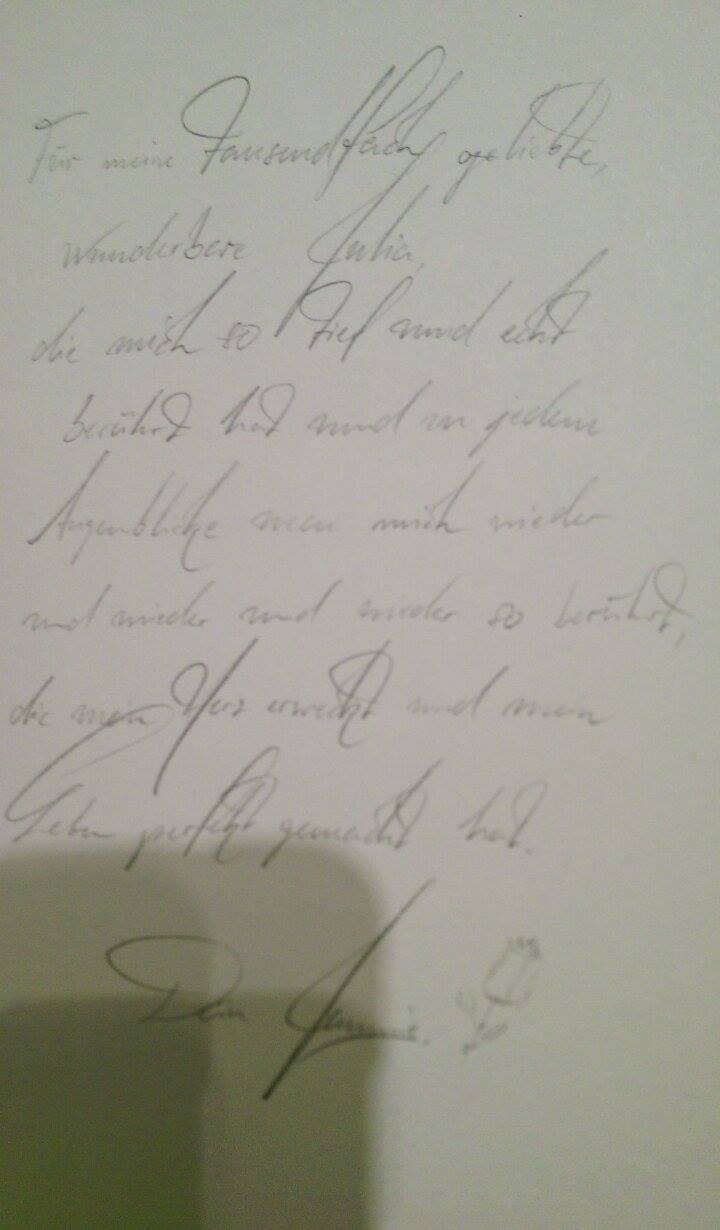 Für meine tausendfach geliebte,
wunderbare Julia,
die mich so tief und echt
berührt hat und in jedem
Augenblicke neu mich wieder
und wieder und wieder so berührt,
die mein Herz erweckt und mein
Leben perfekt gemacht hat.
Dein